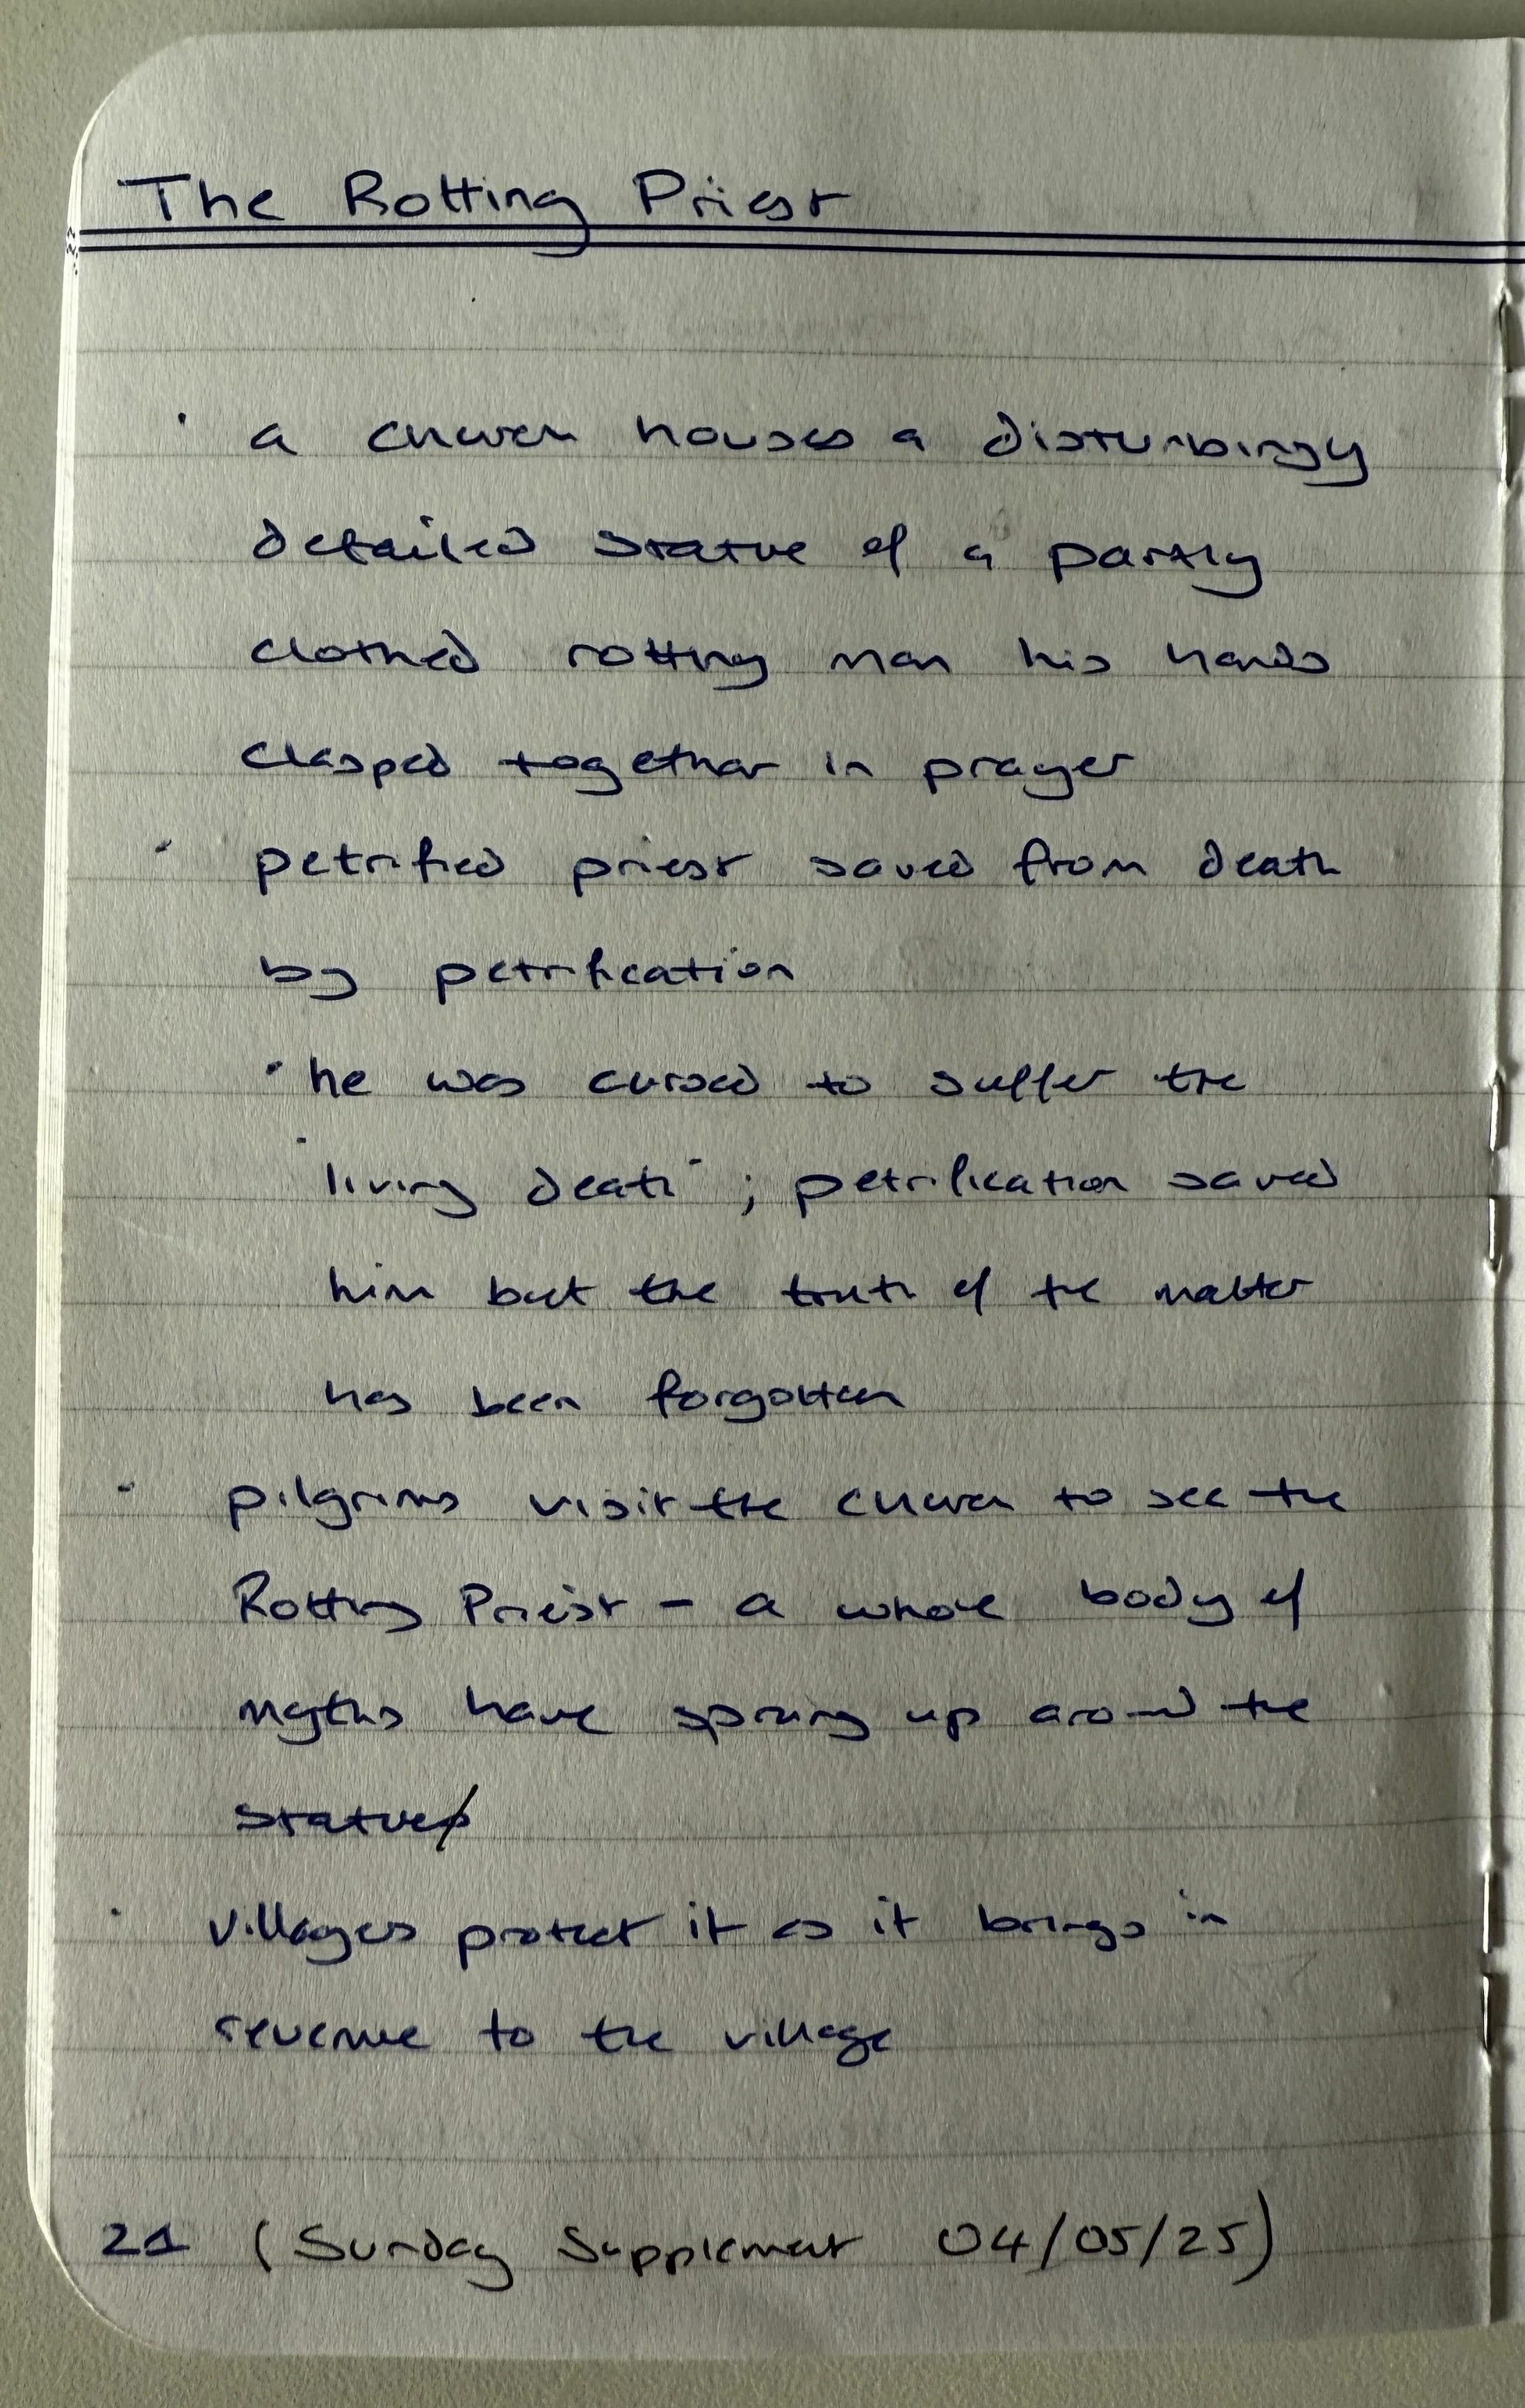 The Rotting Priest
· a church houses a disturbingy
detailed statue of a partly
clothed rotting man his hands
clasped together in prayer
· petrified priest saved from death
by petrification
· he was cursed to suffer the
"living death"; petrification saved
him but the truth of the matter
has been forgotten
· pilgrims visit the church to see the
Rotting Priest - a whole body of
myths have sprung up around the
statue
· villagers protect it as it brings in
revenue to the village
21 (Sunday Supplement 04/05/25)